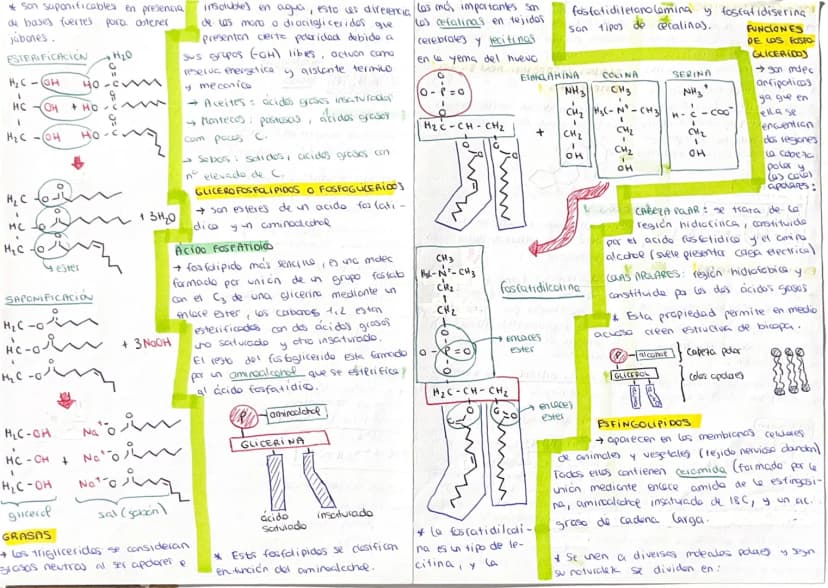 * son saponificables en presencia
de bases fuertes para obtener
jabones.
ESTERIFICACIÓN
H₂O
H₂C - OH HO - C
O
HC - OH + HO - C
O
H₂C - OH HO - C
O
H₂C - O
HC - O
H₂C - O
+ 3H₂O
ESTER
SAPONIFICACIÓN
H₂C - O
HC - O
H₂C - O
+ 3 NaOH
H₂C - OH Na⁺⁻O
HC - OH + Na⁺⁻O
H₂C - OH Na⁺⁻O
glicerol sal (jabón)
GRASAS
→ los triglicéridos se consideran
grasas neutras al ser apolares e
insolubles en agua, esto les diferencia
de los mono o diacilglicéridos que
presentan cierta polaridad debido a
sus grupos (-OH) libres, actúan como
reserva energética y aislante térmico
y mecánico
→ Aceites: ácidos grasos insaturados
→ Mantecas: pastosas, ácidos grasos
con pocos C.
→ Sebos: sólidos, ácidos grasos con
nº elevado de C.
GLICEROFOSFOLIPIDOS O FOSFOGLICERIDOS
→ son ésteres de un ácido fosfatí-
dico y un aminoalcohol
ÁCIDO FOSFATÍDICO
→ fosfolípido más sencillo, es una molec
formada por unión de un grupo fosfato
con el C₃ de una glicerina mediante un
enlace ester, los carbonos 1,2 están
esterificados con dos ácidos grasos
uno saturado y otro insaturado.
El resto del fosfoglicérido está formado
por un aminoalcohol que se esterifica
al ácido fosfatídico.
P
aminoalcohol
GLICERINA
ácido
saturado
insaturado
* Estos fosfolípidos se clasifican
en función del aminoalcohol.
los más importantes son
las cefalinas en tejidos
cerebrales y lecitinas
en la yema del huevo
O
O - P = O
O
H₂C - CH - CH₂
+
ETANOLAMINA
NH₃
CH₂
CH₂
OH
COLINA
CH₃
H₃C - N⁺ - CH₃
CH₂
CH₂
OH
SERINA
NH₃⁺
H - C - COO⁻
CH₂
OH
CH₃
H₃C - N⁺ - CH₃
CH₂
CH₂
O
O - P = O
O
H₂C - CH - CH₂
fosfatidilcolina
ENLACES
ester
enlaces
ester
* La fosfatidilcoli-
na es un tipo de le-
citina, y la
fosfatidiletanolamina y fosfatidilserina
son tipos de cefalinas.
FUNCIONES
DE LOS FOSFO
GLICERIDOS
→ son molec
anfipáticas
ya que en
ella se
encuentran
dos regiones
la cabeza
polar y
las colas
apolares:
CABEZA POLAR: se trata de la
región hidrofílica, constituida
por el ácido fosfatídico y el amino
alcohol (suele presentar carga eléctrica)
COLAS APOLARES: región hidrofóbica y
constituida por los dos ácidos grasos
* Esta propiedad permite en medio
acuoso creen estructura de bicapa.
P
alcohol
GLICEROL
cabeza polar
colas apolares
ESFINGOLIPIDOS
→ aparecen en las membranas celulares
de animales y vegetales (tejido nervioso abundan)
Todos ellos contienen ceramida (formado por la
unión mediante enlace amida de la esfingosi-
na, aminoalcohol insaturado de 18C, y un ac.
graso de cadena larga.
* Se unen a diversas moléculas polares y según
su naturaleza se dividen en: